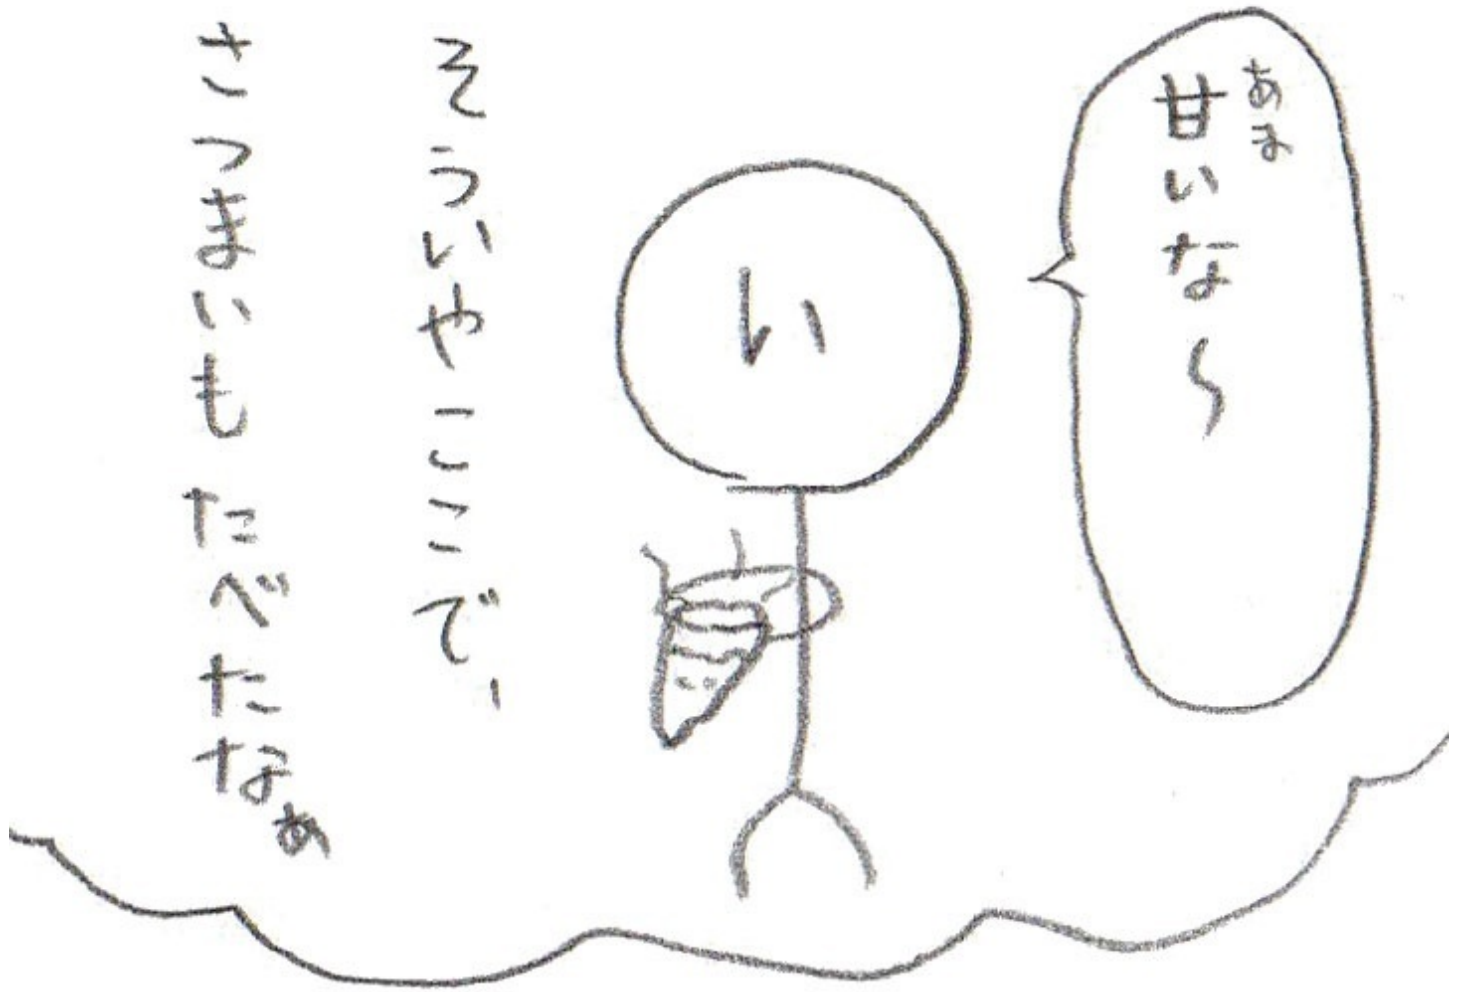 あま
甘いな〜
い
そういやここで、
さつまいもたべたなぁ